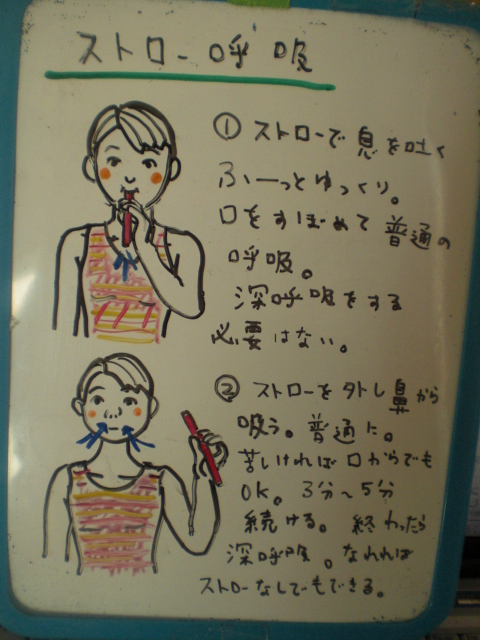 ストロー呼吸
① ストローで息を吐く
ふーっとゆっくり。
口をすぼめて普通の
呼吸。
深呼吸をする
必要はない。
② ストローを外し鼻から
吸う。普通に。
苦しければ口からでも
OK。3分〜5分
続ける。終わったら
深呼吸。なれれば
ストローなしでもできる。